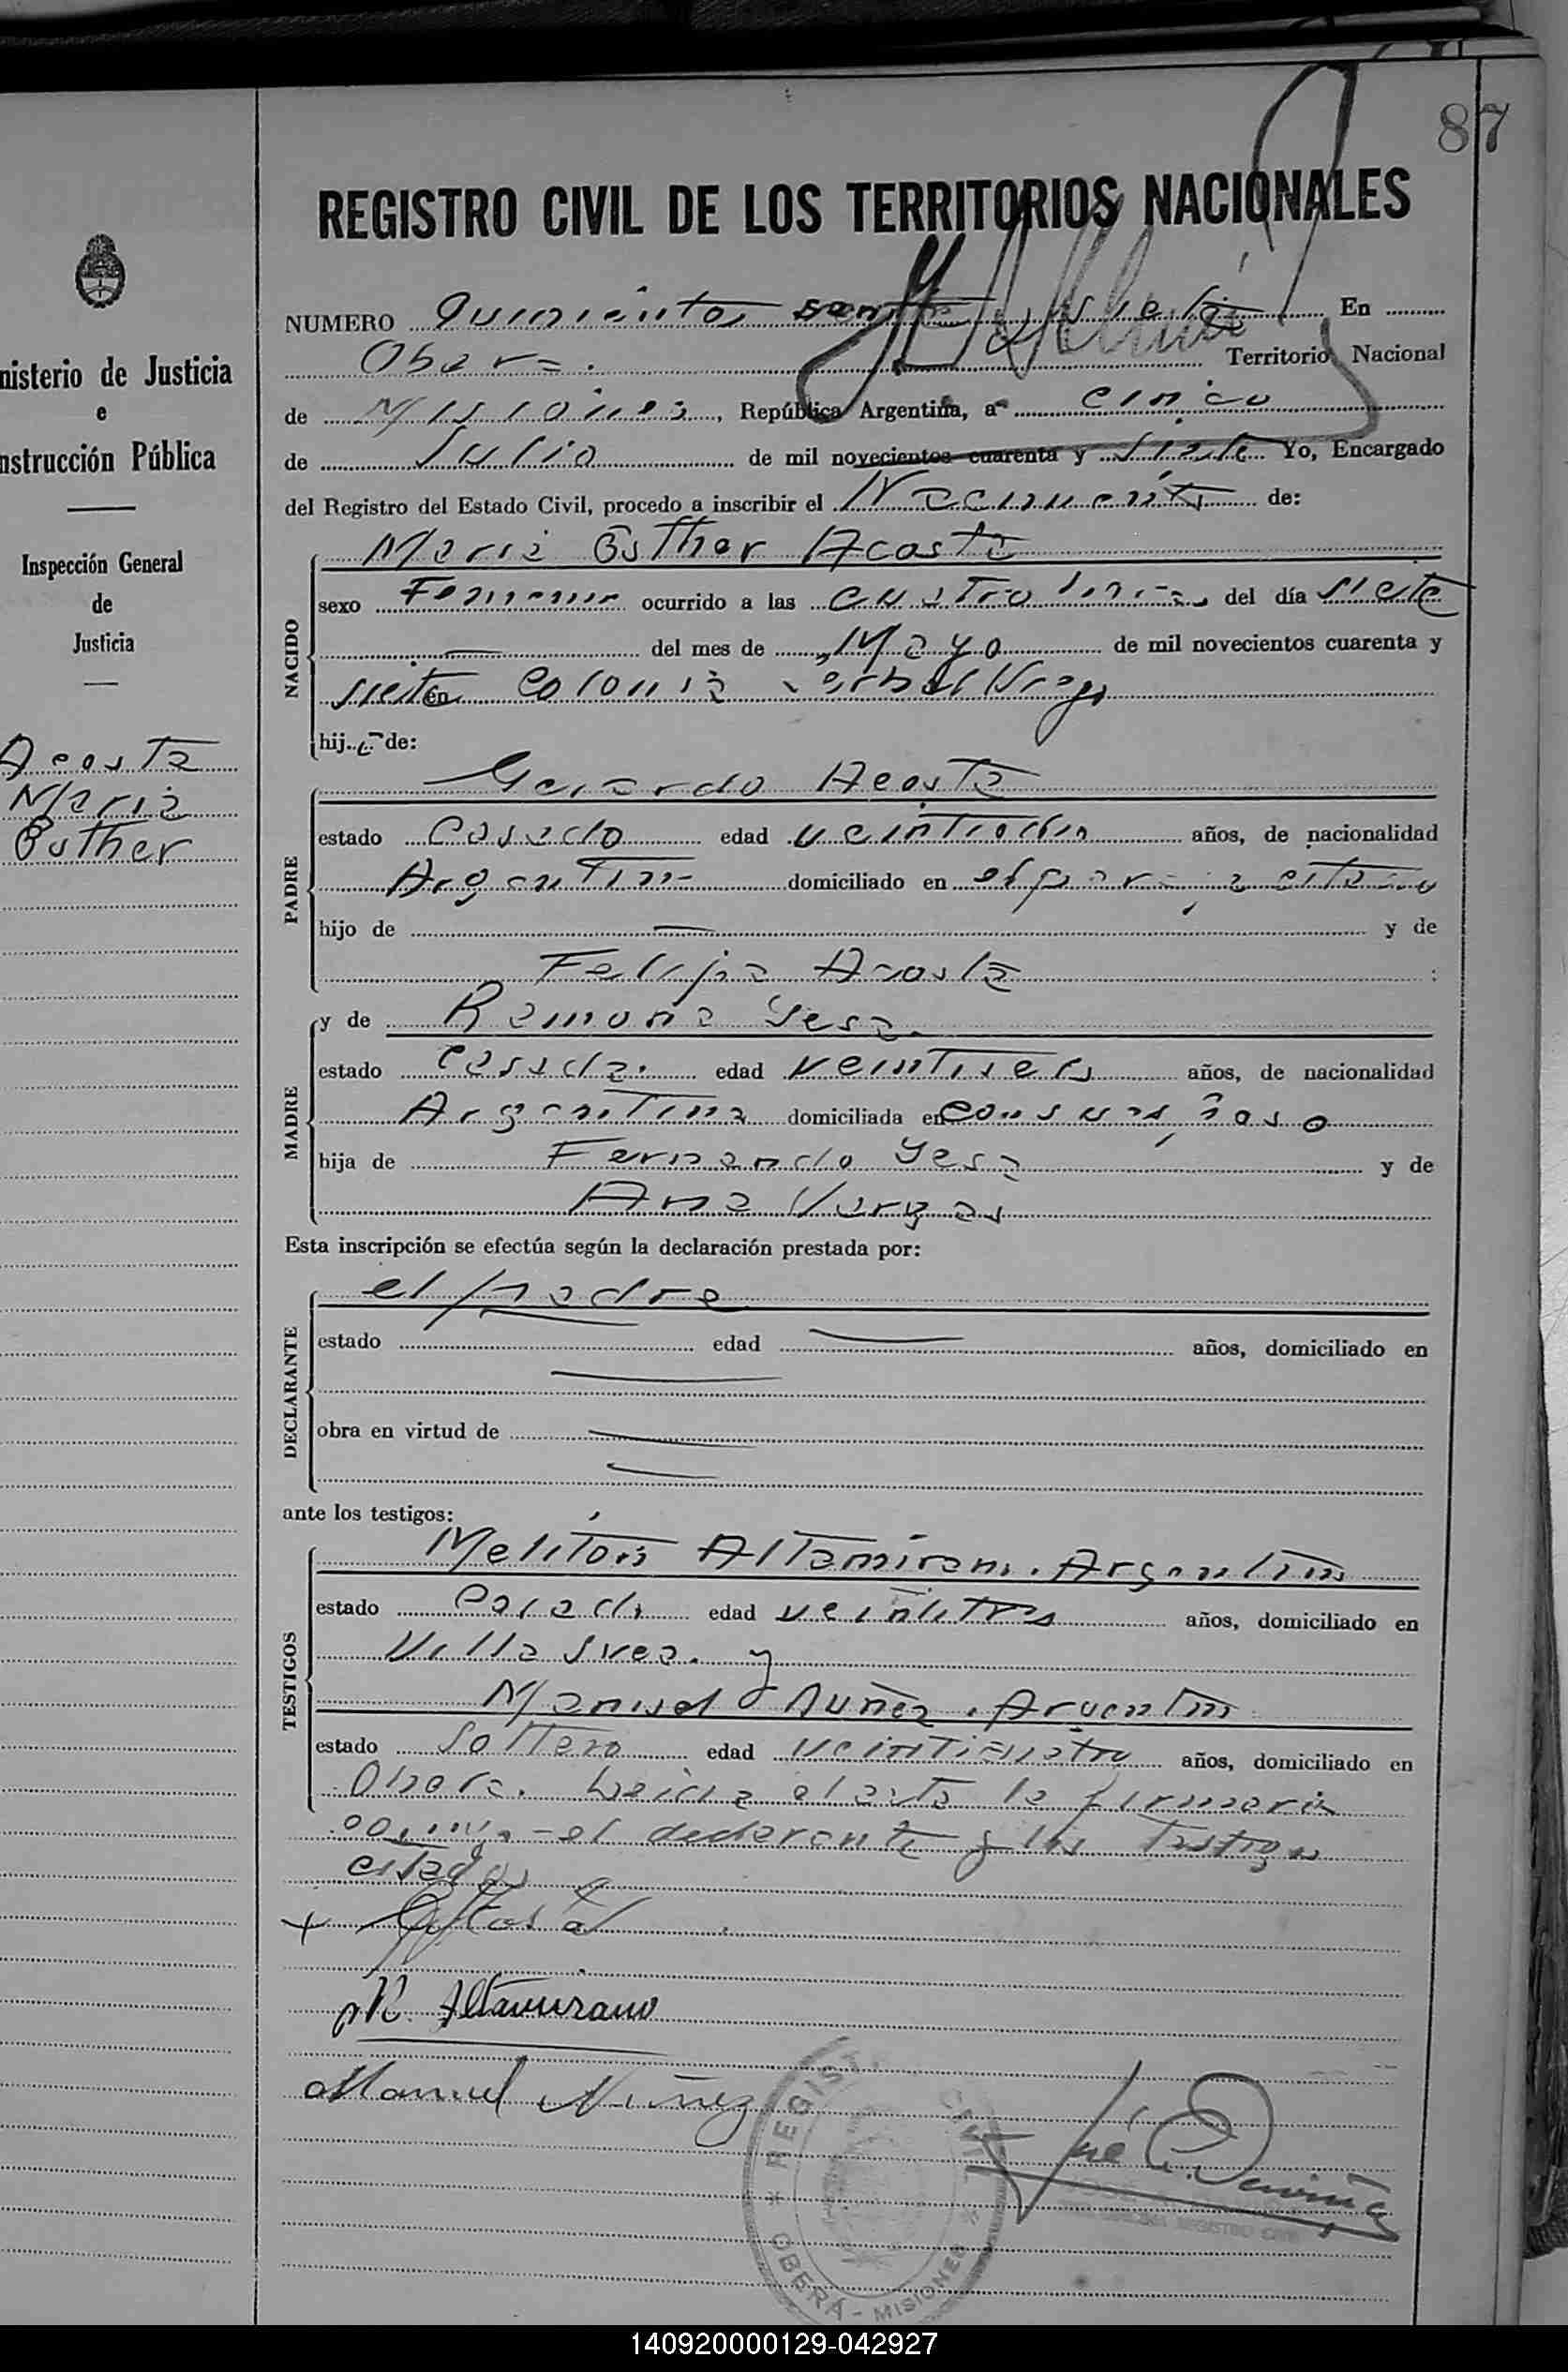 87
REGISTRO CIVIL DE LOS TERRITORIOS NACIONALES
NUMERO Quinientos y siete En
Oberá. Territorio Nacional
de Misiones, República Argentina, a cinco
de Julio de mil novecientos cuarenta y siete Yo, Encargado
del Registro del Estado Civil, procedo a inscribir el Nacimiento de:
Maria Esther Acosta
NACIDO
sexo Femenino ocurrido a las cuatro horas del día siete
del mes de Mayo de mil novecientos cuarenta y
siete en Colonia
hija de:
Gerardo Acosta
PADRE
estado Casado edad veintiocho años, de nacionalidad
Argentino domiciliado en
hijo de y de
Felipa Acosta
y de Ramona Yesa.
MADRE
estado Casada. edad veintiseis años, de nacionalidad
Argentina domiciliada en con su esposo
hija de Fernando Yesa y de
Ana Vargas
Esta inscripción se efectúa según la declaración prestada por:
el padre
DECLARANTE
estado edad años, domiciliado en
obra en virtud de
ante los testigos:
Melitón Altamirano. Argentino
TESTIGOS
estado Casado edad veintitres años, domiciliado en
Villa Svea. y
Manuel Nuñez. Argentino
estado Soltero edad veinticuatro años, domiciliado en
Oberá. Leida el acta la firmaron
conmigo el declarante y los testigos
citados
M. Altamirano
Manuel Núñez
REGISTRO CIVIL
OBERÁ - MISIONES
nisterio de Justicia
e
nstrucción Pública
Inspección General
de
Justicia
Acosta
Maria
Esther
140920000129-042927